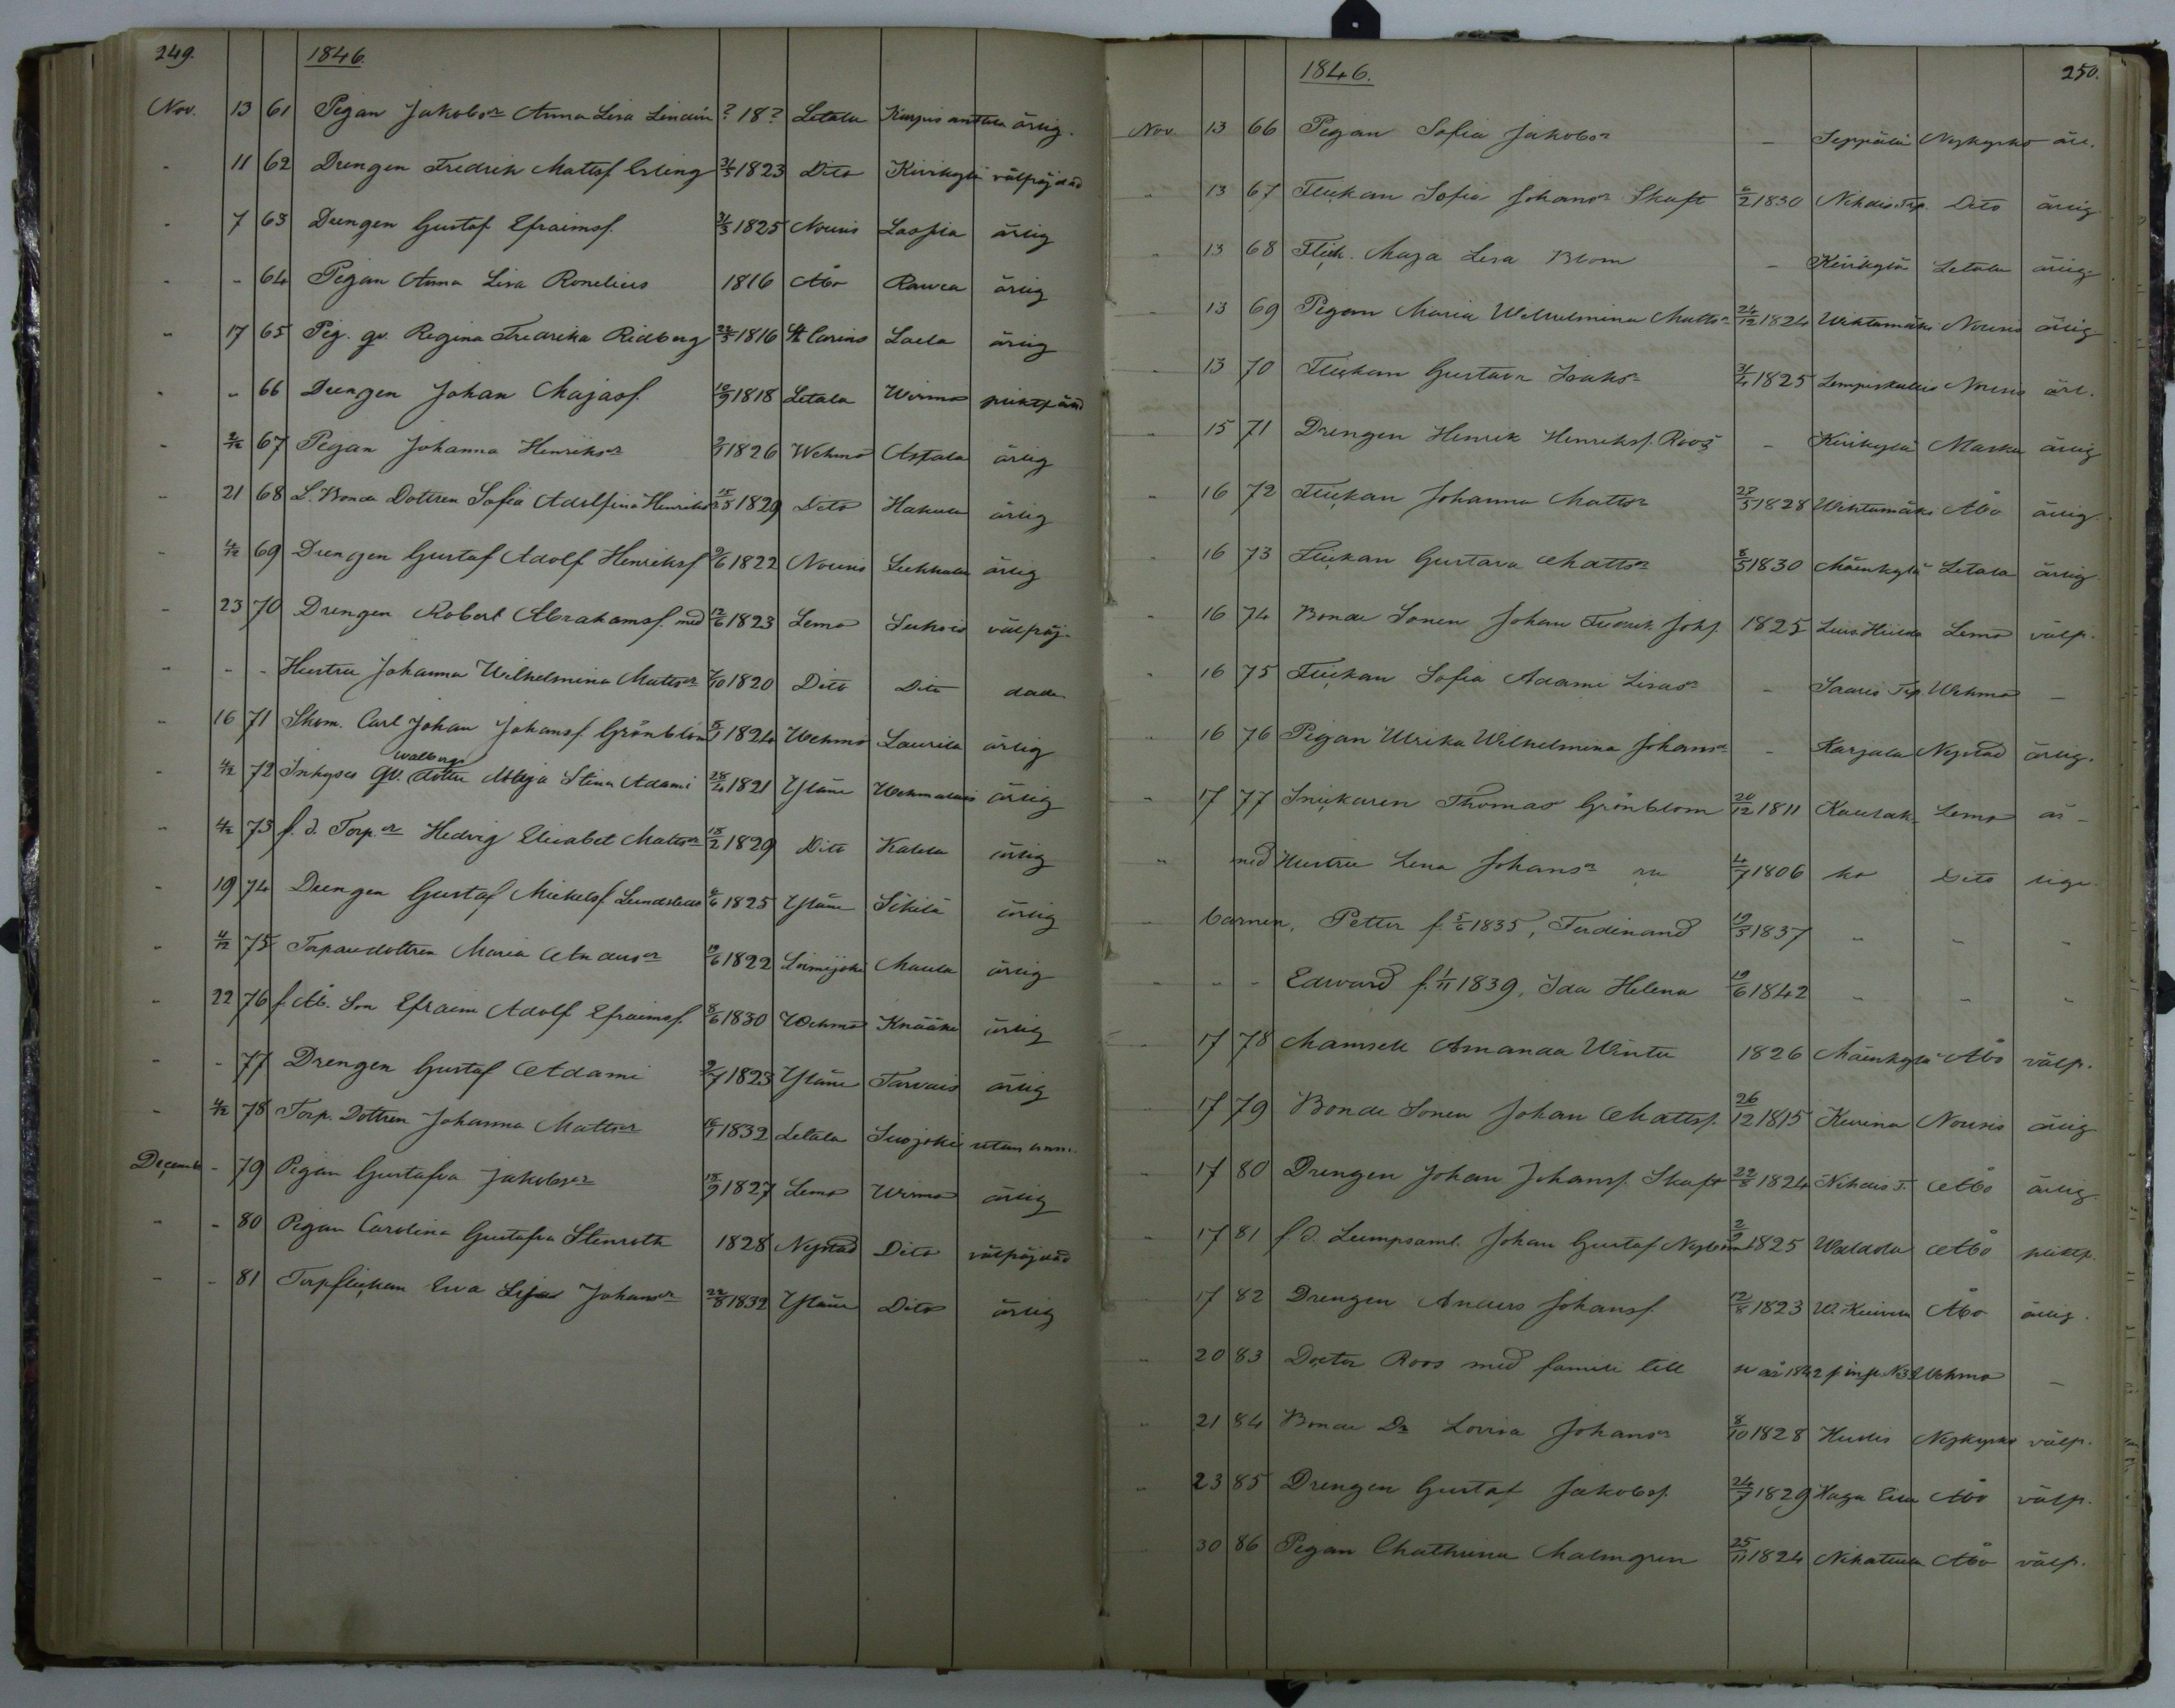 249.
1846.
Nov. 13 61 Pigan Jakobsr Anna Lisa Lindin ? 18? Letala ärlig.
- 11 62 Drengen Fredrik Mattsf. Erling 31/5 1823 Dito Kirikylä välfräjdad
- 7 63 Drengen Gustaf Efraimsf. 31/3 1825 Nousis Laspia ärlig
- - 64 Pigan Anna Lisa Ronelius 1816 Åbo Rauvea ärlig
- 17 65 Pig. qv. Regina Fredrika Ridberg 22/3 1816 St Carins Laela ärlig
- - 66 Drengen Johan Majasf. 10/9 1818 Letala Wirmo
- 2/12 67 Pigan Johanna Henriksr 1826 Wehmo Astala ärlig
- 21 68 L. Bonde Dottren Sofia Adolfina Henriksr 15/5 1829 Dito Hakula ärlig
- 4/12 69 Drengen Gustaf Adolf Henriksf 9/6 1822 Nousis ärlig
- 23 70 Drengen Robert Abrahamsf. med 12/6 1823 Lemo välfräj.
- - - Hustru Johanna Wilhelmina Mattsr 7/10 1820 Dito Dito
- 16 71 Skom. Carl Johan Johansf. Grönblom 5/1 1824 Wehmo Laurila ärlig
Walborgs
- 4/12 72 Inhyses Qv. dotter Maja Stina Adami 28/4 1821 Yläne ärlig
- 4/12 73 f.d. Torp.r Hedvig Elisabet Mattsr 18/2 1829 Dito ärlig
- 19 74 Drengen Gustaf Mickelsf. 6/6 1825 Yläne ärlig
- 4/12 75 Torparedottren Maria Andersr 19/6 1822 Loimijoki ärlig
- 22 76 f. Åb. Son Efraim Adolf Efraimsf. 8/6 1830 Wehmo ärlig
- - 77 Drengen Gustaf Adami 9/7 1823 Yläne Tarvais ärlig
- 4/12 78 Torp. Dottren Johanna Mattsr 1832 Letala Suojoki utan anm.
December - 79 Pigan Gustafva Jakobsr 18/9 1827 Lemo Wirmo ärlig
- - 80 Pigan Carolina Gustafva Stenroth 1828 Nystad Dito välfräjdad
- - 81 Torpflickan Eva Lisa Johansr 22/8 1832 Yläne Dito ärlig
250.
1846.
Nov. 13 66 Pigan Sofia Jakobsr - Seppälä Nykyrko ärl.
- 13 67 Flickan Sofia Johansr Skaft 6/2 1830 Nihdis Trp. Dito ärlig
- 13 68 Flick. Maja Lisa Blom - Kirikylä Letala ärlig
- 13 69 Pigan Maria Wilhelmina Mattsr 24/12 1824 Wihtamäki Nousis ärlig
- 13 70 Flickan Gustava Isaksr 31/4 1825 Nousis ärl.
- 15 71 Drengen Henrik Henriksf. Roos - Kirikylä Masku ärlig
- 16 72 Flickan Johanna Mattsr 28/5 1828 Wihtamäki Åbo ärlig
- 16 73 Flickan Gustava Mattsr 8/5 1830 Mäenkylä Letala ärlig
- 16 74 Bonde Sonen Johan Fredrik Johsf. 1825 Lemo välf.
- 16 75 Flickan Sofia Adami Lisasr - Saaris Trp. Wehmo -
- 16 76 Pigan Ulrika Wilhelmina Johansr - Karjala Nystad ärlig.
- 17 77 Snickaren Thomas Grönblom 20/12 1811 Kaulak Lemo är-
- med Hustru Lena Johansr 4/7 1806 ko Dito liga
- barnen, Petter f. 5/6 1835, Ferdinand 19/5 1837 - - -
- - - Edward f. 1/11 1839, Ida Helena 19/6 1842 - - -
- 17 78 Mamsell Amanda Winter 1826 Mäenkylä Åbo välf.
- 17 79 Bonde Sonen Johan Mattsf. 26/12 1815 Nousis ärlig
- 17 80 Drengen Johan Johansf. Skaft 22/8 1824 Nihdis T. Åbo ärlig
- 17 81 f.d. Lumpsaml. Johan Gustaf Nyblom 2/9 1825 Waldola Åbo
- 17 82 Drengen Anders Johansf. 12/8 1823 Åbo ärlig.
- 20 83 Docter Roos med familie till Wehmo -
- 21 84 Bonde Dr Lovisa Johansr 8/10 1828 Nykyrko välf.
- 23 85 Drengen Gustaf Jakobsf. 24/7 1829 Åbo välf.
30 86 Pigan Chathrina Malmgren 25/11 1824 Åbo välf.